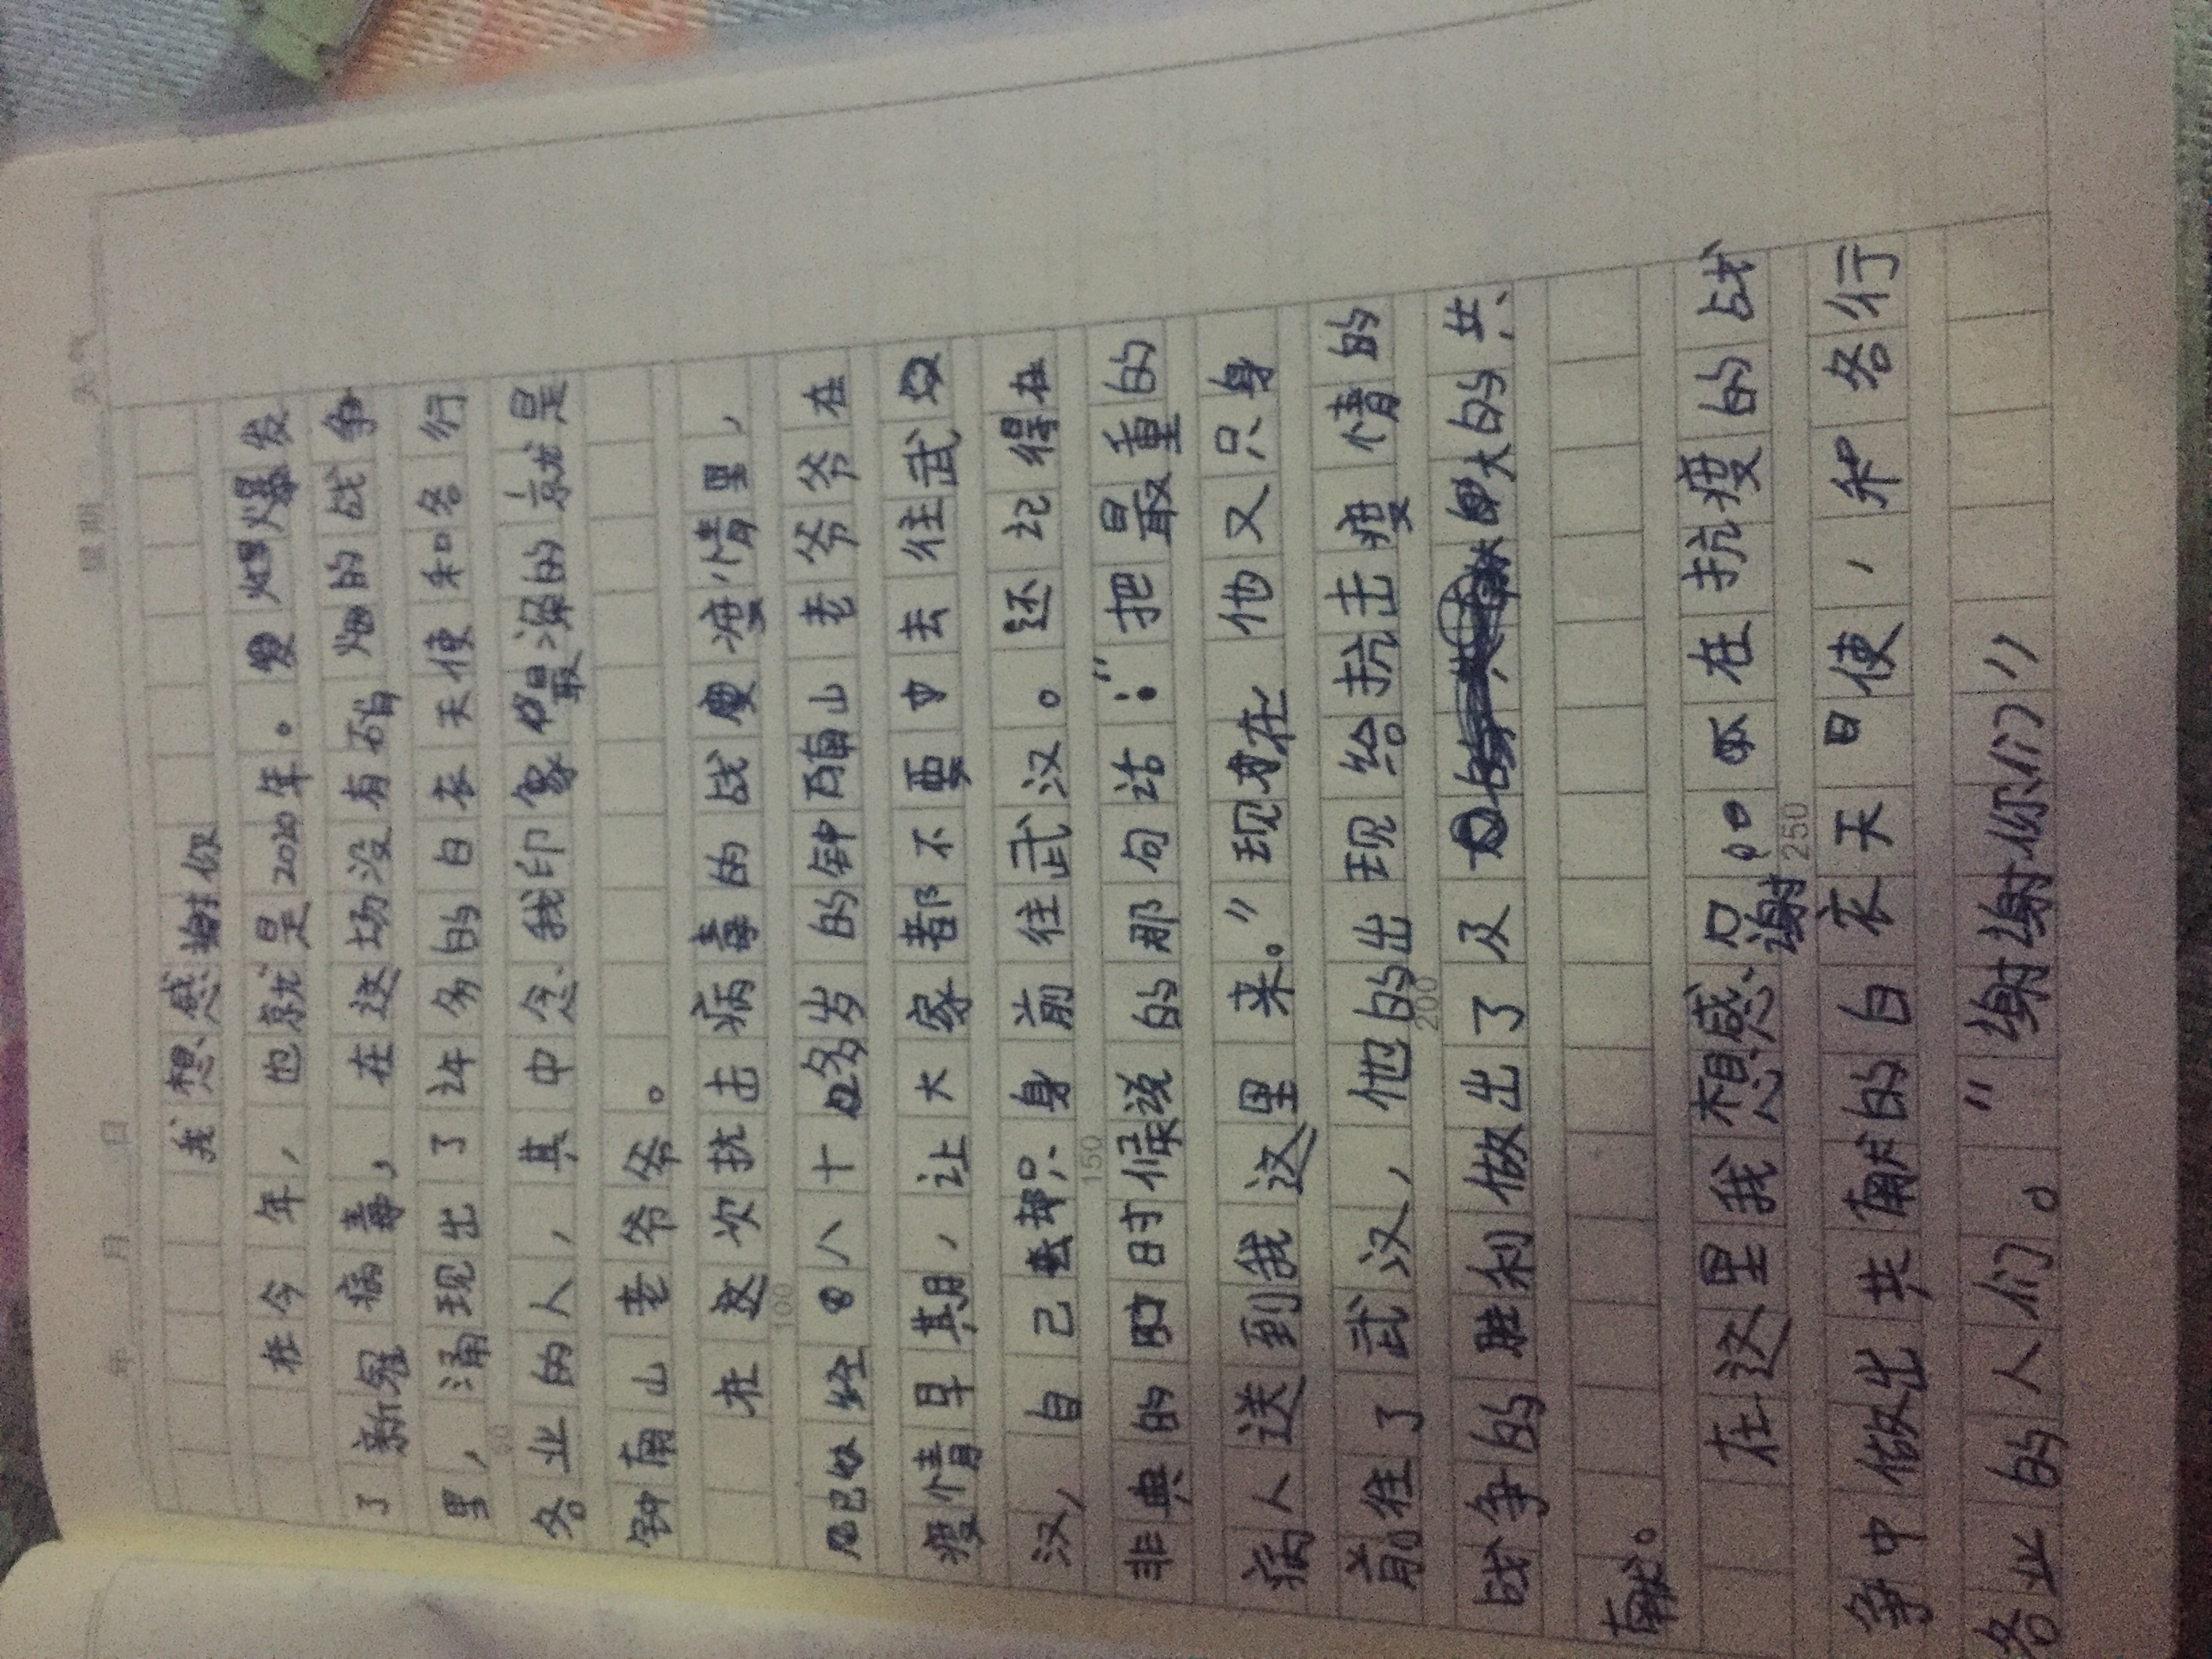 年 月 日 星期 天气
我想感谢你
在今年，也就是2020年。爆发
了新冠病毒，在这场没有硝烟的战争
里，涌现出了许多的白衣天使和各行
各业的人，其中令我印象最深的就是
钟南山老爷爷。
在这次抗击病毒的战疫情里，
已经八十多岁的钟南山老爷爷在
疫情早期，让大家都不要去往武
汉，自己却只身前往武汉。还记得在
150
非典的时候说的那句话：“把最重的
病人送到我这里来。”现在他又只身
前往了武汉，他的出现给抗击疫情的
200
战争的胜利做出了及大的共、
献。
在这里我想感谢在抗疫的战
250
争中做出共献的白衣天使，和各行
各业的人们。“谢谢你们”